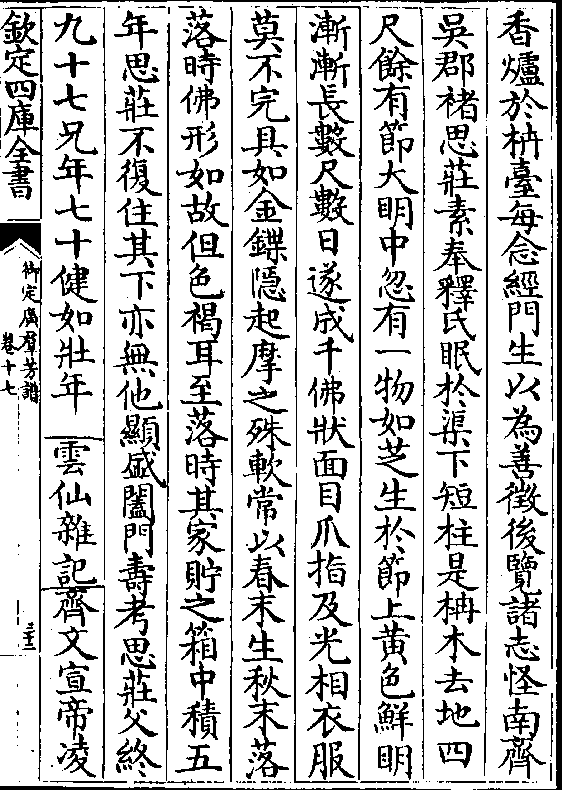 香爐於枏臺每念經門生以為善徵後覽諸志怪南齊
吳郡褚思莊素奉釋氏眠於渠下短柱是枏木去地四
尺餘有節大明中忽有一物如芝生於節上黄色鮮明
漸漸長數尺數日遂成千佛狀面目爪指及光相衣服
莫不完具如金鍱隱起摩之殊軟常以春末生秋末落
落時佛形如故但色褐耳至落時其家貯之箱中積五
年思莊不復住其下亦無他顯盛闔門壽考思莊父終
九十七兄年七十健如壯年 雲仙雜記齊文宣帝凌
欽定四庫全書
御定廣羣芳譜
卷十七
三十三